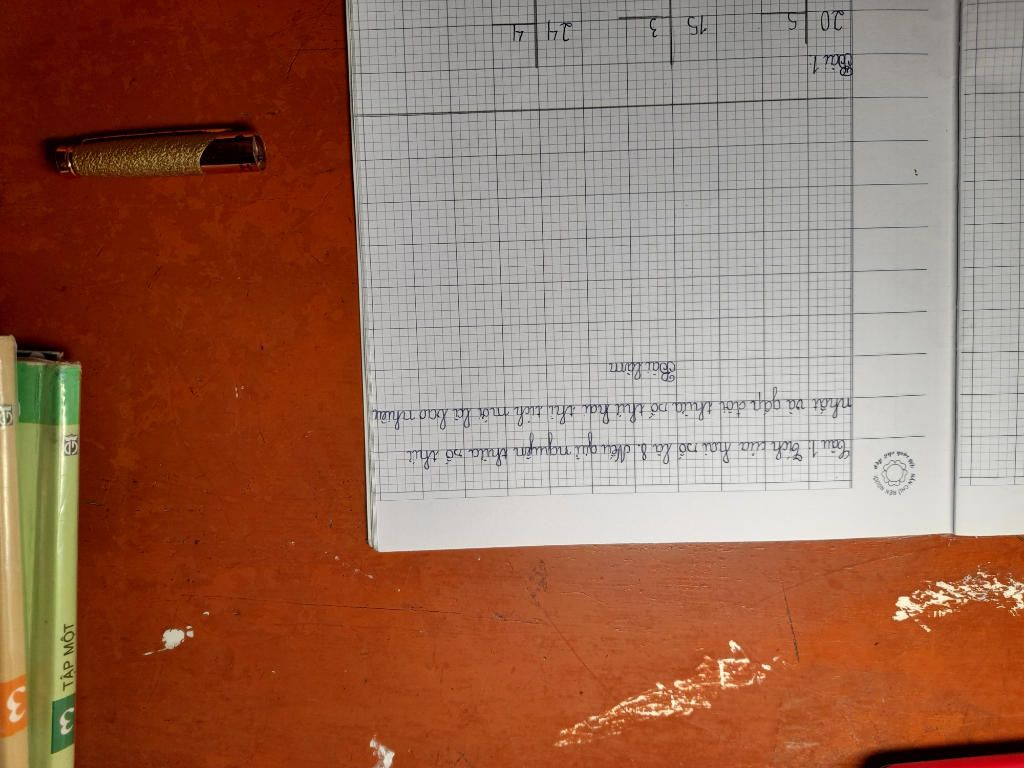 Câu 1. Tích của hai số là 8. Nếu giữ nguyên thừa số thứ
nhất và gấp đôi thừa số thứ hai thì tích mới là bao nhiêu
Bài làm
Bài 1
20 5 15 3 24 4
TẬP MỘT
3
3